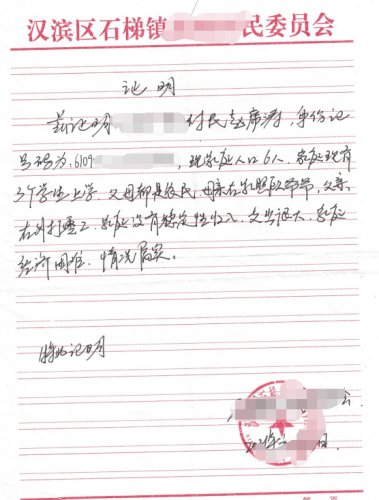 汉滨区石梯镇 民委员会
证明
兹证明 村民赵席涛,身份证
号码为:6109 ,现家庭人口6人,家庭现有
3个学生上学,父母都是农民,母亲在家照顾爷爷,父亲
在外打零工,家庭没有稳定性收入,支出很大,家庭
经济困难,情况属实。
特此证明
会